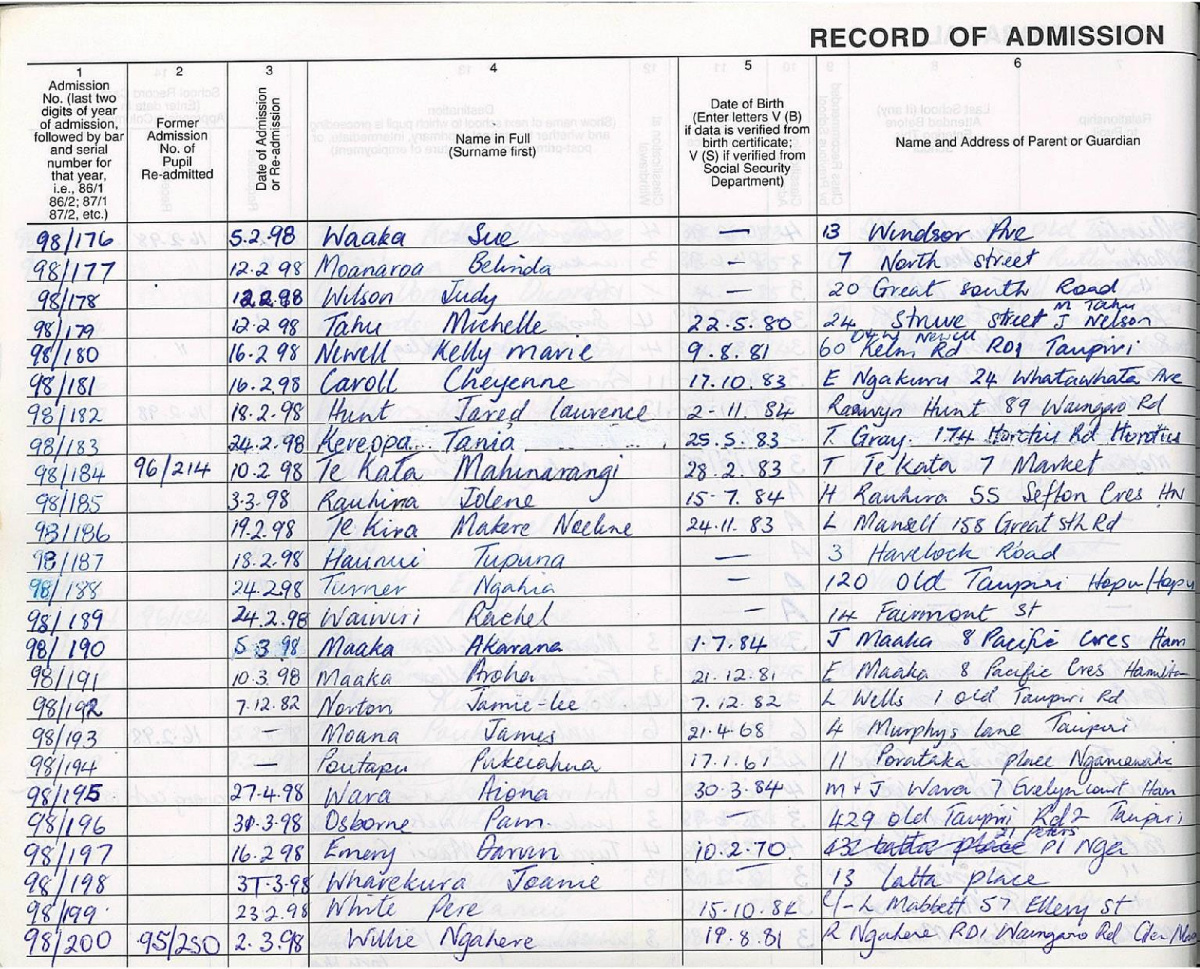 RECORD OF ADMISSION
1 2 3 4 5 6
Admission No. (last two digits of year of admission, followed by bar and serial number for that year, i.e., 86/1 86/2; 87/1 87/2, etc.)
Former Admission No. of Pupil Re-admitted
Date of Admission or Re-admission
Name in Full (Surname first)
Date of Birth (Enter letters V (B) if data is verified from birth certificate; V (S) if verified from Social Security Department)
Name and Address of Parent or Guardian
98/176 5.2.98 Waaka Sue — 13 Windsor Ave
98/177 12.2.98 Moanaroa Belinda — 7 North Street
98/178 12.2.98 Wilson Judy — 20 Great South Road
98/179 12.2.98 Tahu Michelle 22.5.80 24 Struve Street M Tahu J Nelson
98/180 16.2.98 Newell Kelly marie 9.8.81 60 Kelm Rd RD1 Taupiri
98/181 16.2.98 Caroll Cheyenne 17.10.83 E Ngakuru 24 Whatawhata Ave
98/182 18.2.98 Hunt Jared Laurence 2-11.84 Hunt 89 Waingaro Rd
98/183 24.2.98 Kereopa Tania 25.5.83 T. Gray. 174 Horotiu Rd Horotiu
98/184 96/214 10.2.98 Te Kata Mahinarangi 28.2.83 T Te Kata 7 Market
98/185 3-3.98 Rauhina Jolene 15.7.84 H Rauhira 55 Sefton Cres
98/186 19.2.98 Te Kira Makere Noeline 24.11.83 L Mansell 158 Great Sth Rd
98/187 18.2.98 Haunui Tupuna — 3 Havelock Road
98/188 24.2.98 Turner Ngahia — 120 old Taupiri Hopu/Hopu
98/189 24.2.98 Waiwiri Rachel — 14 Fairmont St
98/190 5.3.98 Maaka Akarana 1.7.84 J Maaka 8 Pacific Cres Ham
98/191 10.3.98 Maaka Aroha 21.12.81 E Maaka 8 Pacific Cres Hamilton
98/192 7.12.82 Norton Jamie-lee 7.12.82 L Wells 1 old Taupiri Rd
98/193 — Moana James 21.4.68 4 Murphys Lane Taupiri
98/194 — Poutapu Pukeiahua 17.1.61 11 Porataka place Ngaruawahia
98/195 27.4.98 Wara Aiona 30.3.84 m + J Wara 7 Evelyn Court Ham
98/196 31.3.98 Osborne Pam. — 429 old Taupiri Rd 2 Taupiri
98/197 16.2.98 Emery 10.2.70. 21 Peters Pl Nga
98/198 31.3.98 Wharekura Joanie — 13 Latta place
98/199 23.2.98 White Pere 15.10.84 L Mabbett 57 Ellery St
98/200 95/250 2.3.98 Willie Ngahere 19.8.81 R Ngahere RD1 Waingaro Rd Glen